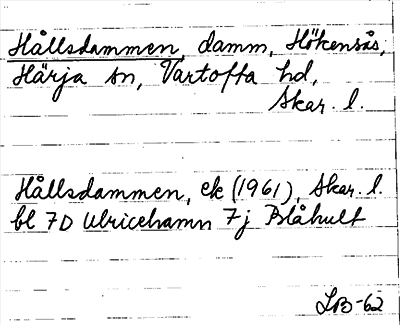 Hållsdammen, damm, Hökensås,
Härja sn, Vartofta hd,
Skar. l.
Hållsdammen, ek (1961), Skar. l.
bl 7D Ulricehamn 7j Blåhult
LB-62